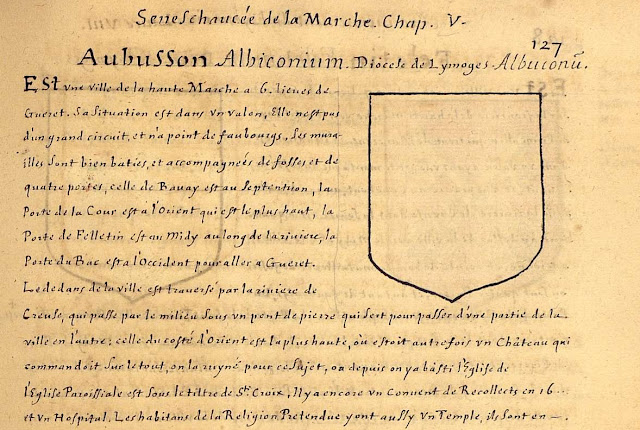 Seneschaucée de la Marche. Chap. V.
127
Aubusson Albiconium. Diocese de Lymoges Albuconũ.
Est vne ville de la haute Marche a 6. lieues de
Gueret. Sa situation est dans vn valon, Elle n'est pas
d'un grand circuit, et n'a point de faubourgs, Ses mura-
illes sont bien baties, et accompagnées de fosses et de
quatre portes, celle de Bauay est au Septention, la
Porte de la Cour est a l'Orient qui est le plus haut, la
Porte de Felletin est au Midy au long de la riuiere, la
Porte du Bac est a l'Occident pour aller a Gueret.
Le dedans de la ville est trauersé par la riuiere de
Creuse, qui passe par le milieu sous vn pont de pierre qui sert pour passer d'vne partie de la
ville en l'autre: celle du costé d'Orient est la plus haute, où estoit autrefois vn Château qui
commandoit sur le tout, on l'a ruyné pour ce sujet, où depuis on y a bâsti l'Eglise de
l'Eglise Paroissiale est sous le tiltre de Ste. Croix, Il y a encore vn Conuent de Recollects en 16
et vn Hospital. Les habitans de la Religion Pretendue y ont aussy vn Temple, ils sont en —